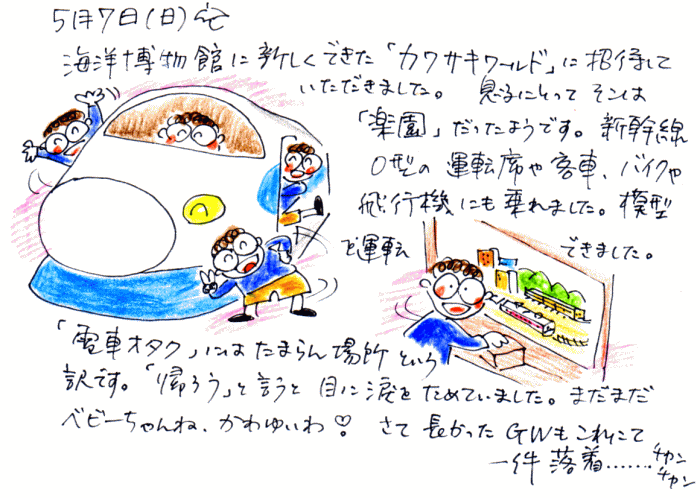 5月7日(日)
海洋博物館に新しくできた「カワサキワールド」に招待して
いただきました。 息子にとって そこは
「楽園」だったようです。新幹線
0型の運転席や客車、バイクや
飛行機にも乗れました。模型
を運転 できました。
「電車オタク」にはたまらん場所という
訳です。「帰ろう」と言うと目に涙をためていました。まだまだ
ベビーちゃんね、かわゆいわ♡ さて長かったGWもこれにて
一件落着……チャン
チャン